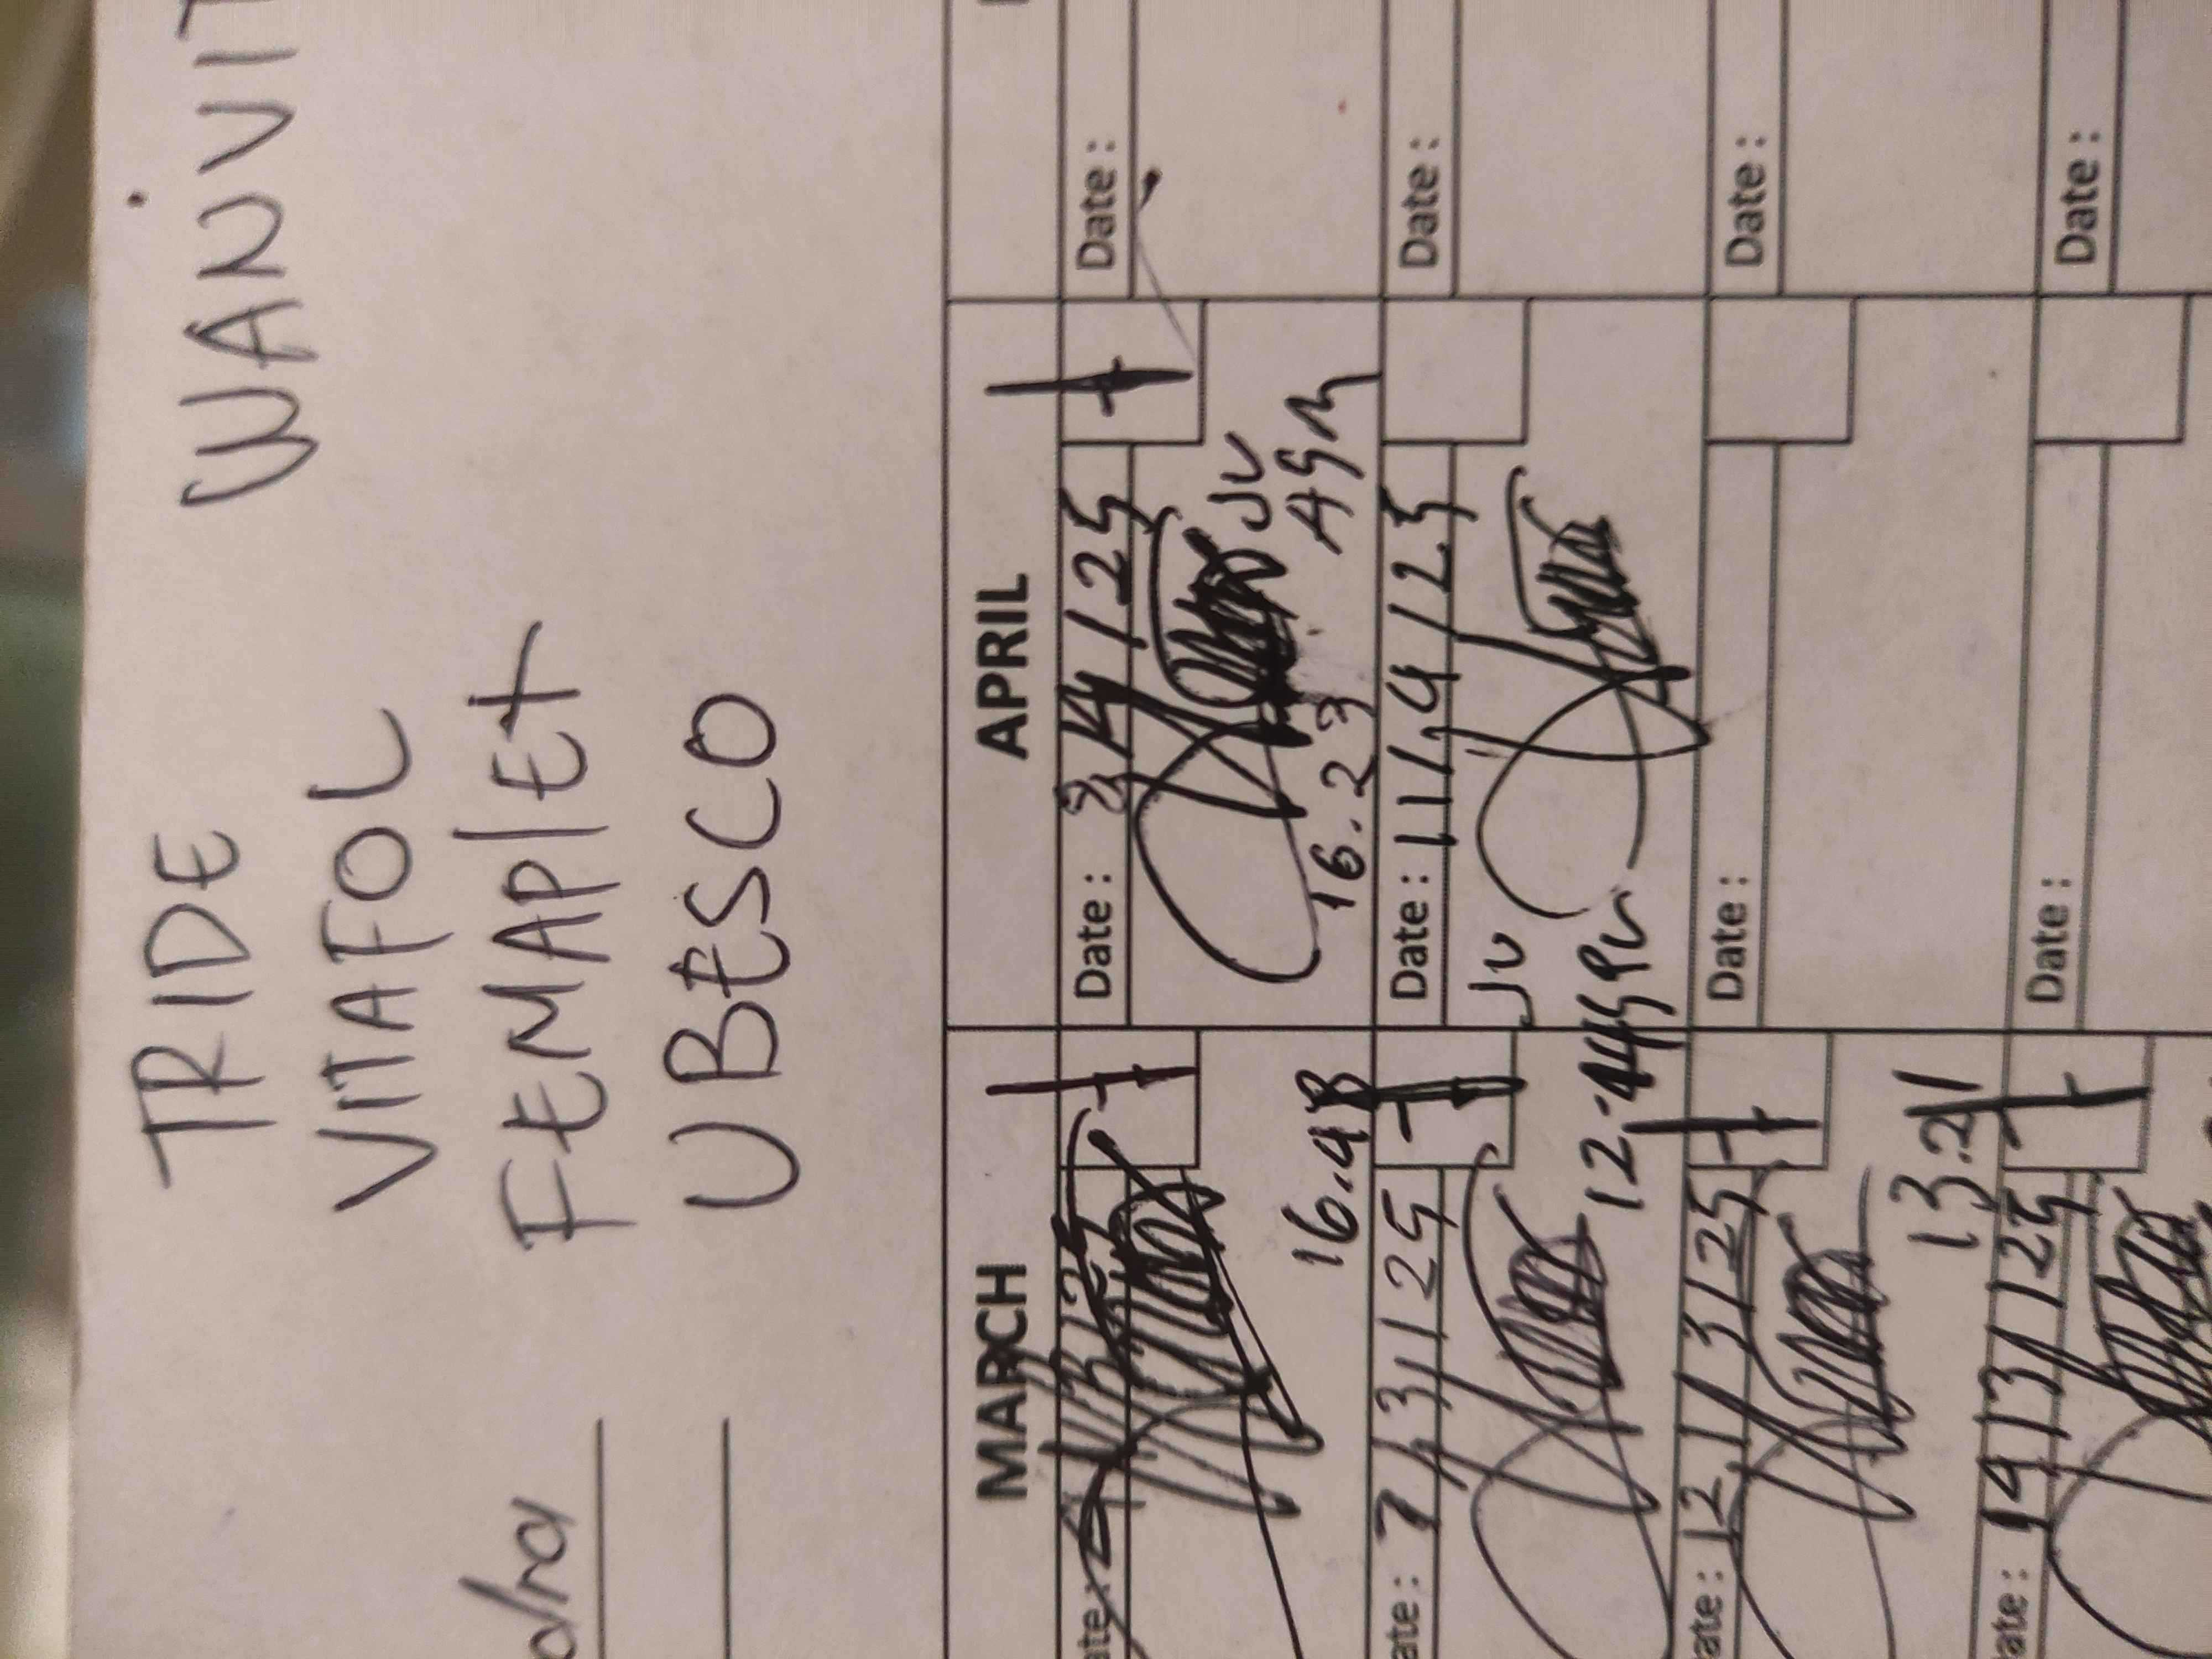 TRIDE WANVIT
VITAFOL
FEMAPlEt
UBESCO
dra
MARCH APRIL
Date : 2/4/25 Date :
16.48 16.23 JU
AGM
ate : 7/3/25 Date : 11/4/25 Date :
JU
12.44
ate : 12/3/25 Date : Date :
13.21
ate : 19/3/25 Date : Date :